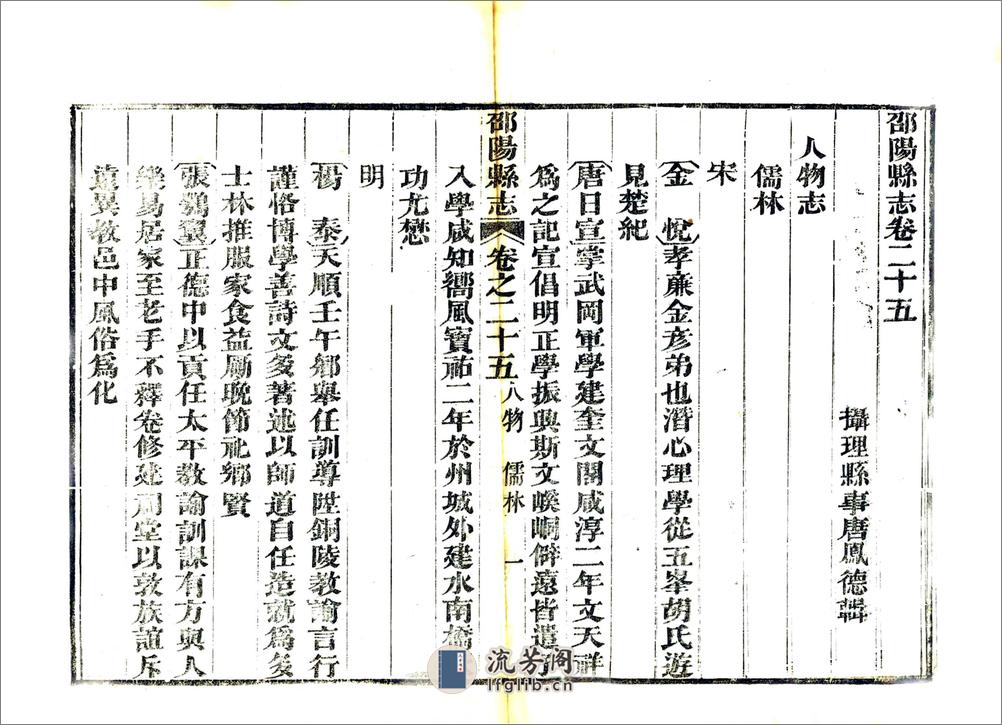 邵陽縣志卷二十五
攝理縣事唐鳳德輯
人物志
儒林
宋
金悅孝亷金彥弟也潛心理學從五峯胡氏遊
見楚紀
唐日宣掌武岡軍學建奎文閣咸淳二年文天祥
爲之記宣倡明正學振興斯文峻峒僻遠皆遣子
邵陽縣志 卷之二十五 人物 儒林 一
入學咸知嚮風寶祐二年於州城外建水南橋
功尤懋
明
楊泰天順壬午鄉舉任訓導陞銅陵教諭言行
謹恪博學善詩文多著述以師道自任造就爲多
士林推服家食益勵晚節祀鄉賢
張鶚翼正德中以貢任太平教諭訓課有方與人
樂易居家至老手不釋卷修建祠堂以敦族誼斥
遠異教邑中風俗爲化
流芳閣
lfglib.cn